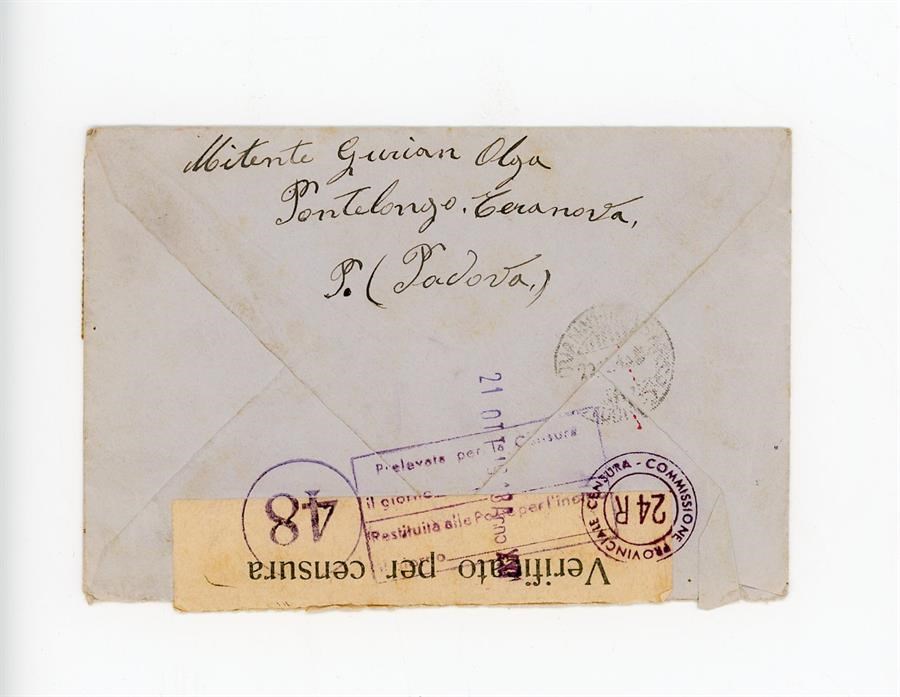 Mitente Gurian Olga
Pontelongo. Teranova,
P. (Padova,)
21 OTT
Prelevata per la Censura
il giorno
Restituita alle Poste per l'ino
48
COMMISSIONE PROVINCIALE CENSURA -
24R
Verificato per censura